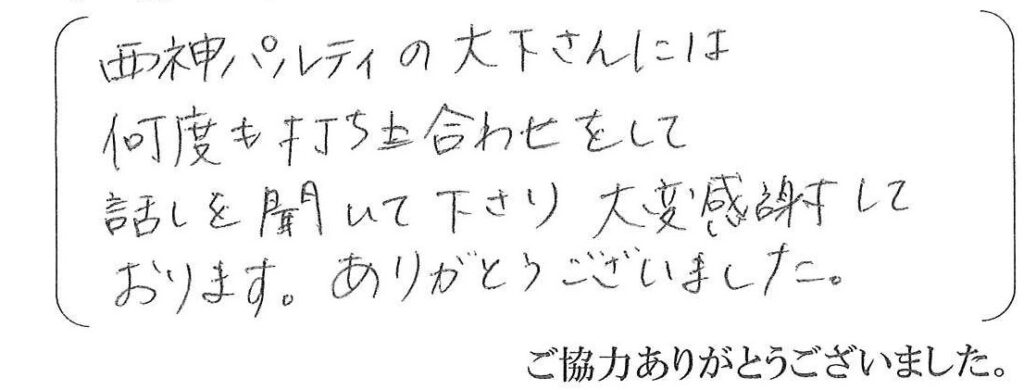 西神パルティの大下さんには
何度も打ち合わせをして
話しを聞いて下さり 大変感謝して
おります。ありがとうございました。
ご協力ありがとうございました。